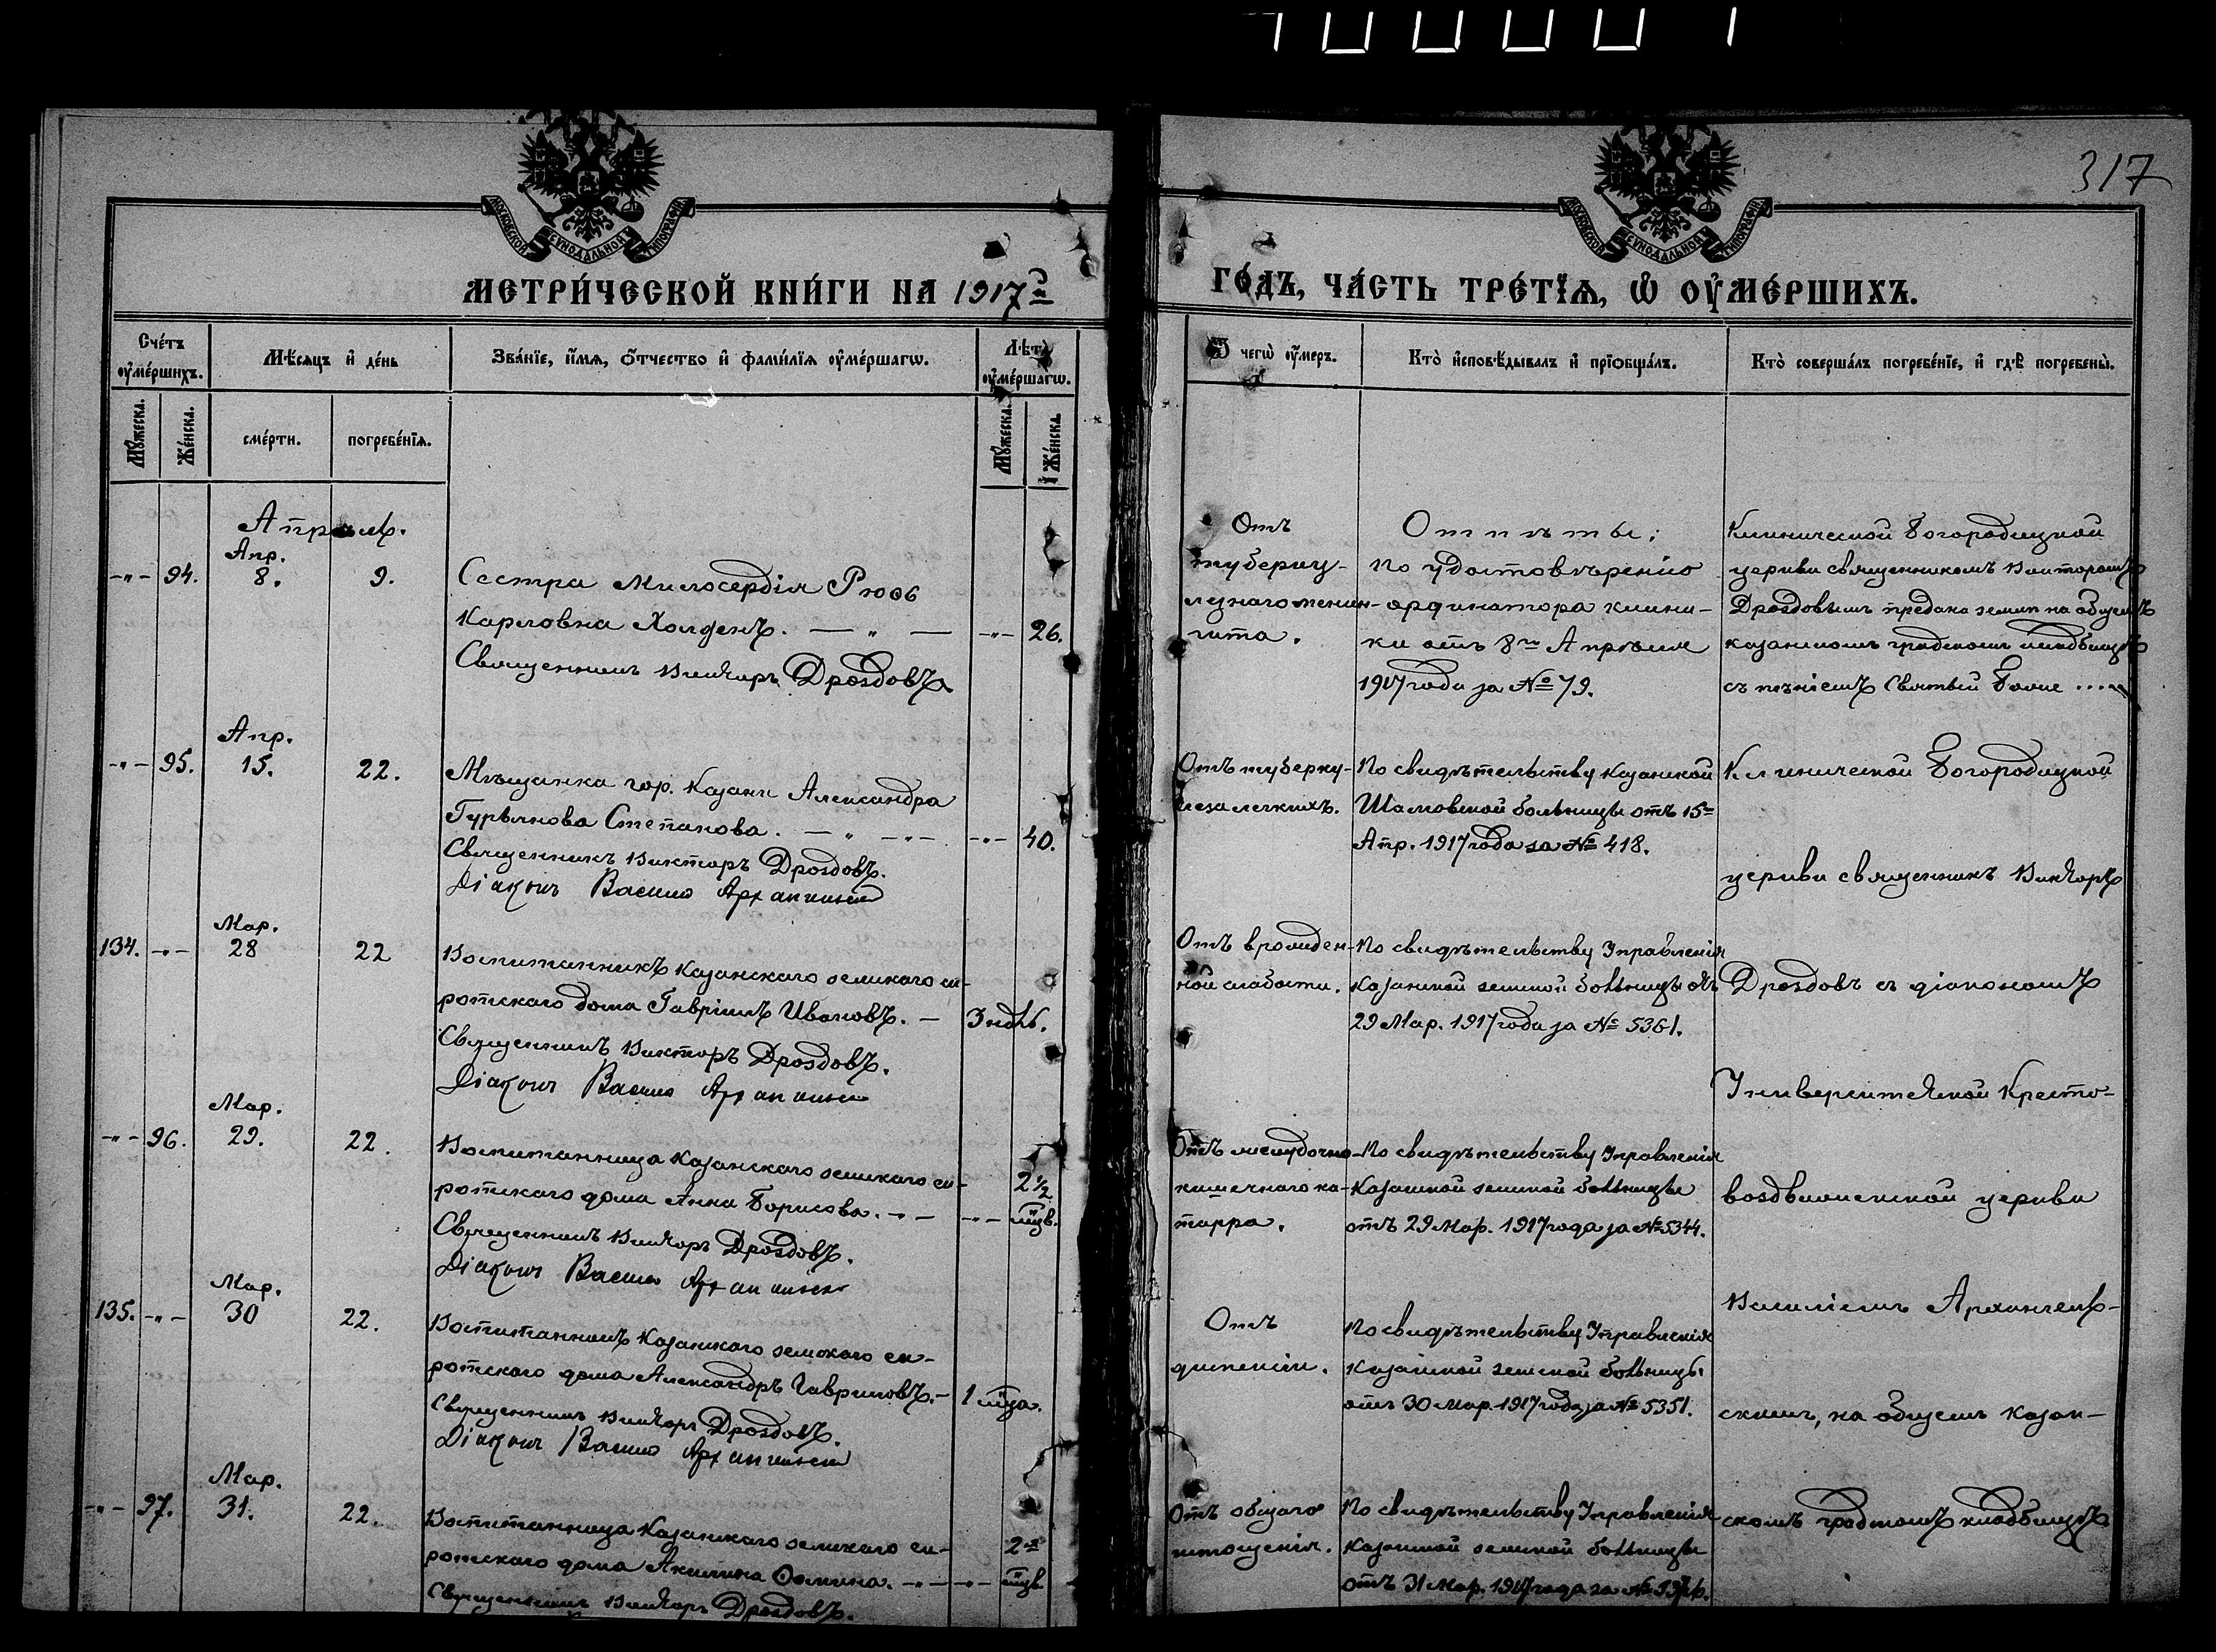 317
МОСКОВСКОЙ СѴНОДАЛЬНОЙ ТИПОГРАФІИ
МОСКОВСКОЙ СѴНОДАЛЬНОЙ ТИПОГРАФІИ
МЕТРИ́ЧЕСКОЙ КНИ́ГИ НА 1917 й
ГО́ДЪ, ЧА́СТЬ ТРЕ́ТЇѦ, Ѡ҆ ОУ҆МЕ́РШИХЪ.
Сче́тъ оу҆ме́ршихъ.
Мѣ́сяцъ и҆ де́нь
Зва́нїе, и҆́мя, ѻ҆́тчество и҆ фами́лїя оу҆ме́ршагѡ.
Лѣ́та оу҆ме́ршагѡ.
Ѿ чегѡ̀ оу҆́меръ.
Кто̀ и҆сповѣ́дывалъ и҆ прїобща́лъ.
Кто̀ соверша́лъ погребе́нїе, и҆ гдѣ̀ погребены̀.
Мꙋ́жеска.
Же́нска.
сме́рти.
погребе́нїя.
Мꙋ́жеска.
Же́нска.
Апрѣль.
Апр.
-"- 94. 8. 9.
Сестра Милосердія
Карловна Холденъ. — " — -"- 26.
Священникъ Викторъ Дроздовъ
Отъ
туберку-
лезнаго менин-
гита.
Отпѣты:
По удостовѣренію
ординатора клини-
ки отъ 8го Апрѣля
1917 года за № 79.
Клинической Богородицкой
церкви священникомъ Викторомъ
Дроздовымъ предана землѣ на общемъ
казанскомъ градскомъ кладбищѣ
съ пѣніемъ Святый Боже .....
Апр.
-"- 95. 15. 22.
Мѣщанка гор. Казани Александра
Гурьянова Степанова. — " — -"- -"- 40.
Священникъ Викторъ Дроздовъ.
Діаконъ Василій Архангельскій
Отъ туберку-
леза легкихъ.
По свидѣтельству Казанской
Шамовской больницы отъ 15=
Апр. 1917 года за № 418.
Клинической Богородицкой
церкви священникъ Викторъ
Мар.
134. -"- 28 22
Воспитанникъ Казанскаго земскаго си-
ротскаго дома Гавріилъ Ивановъ. — 3 ндѣ.
Священникъ Викторъ Дроздовъ.
Діаконъ Василій Архангельскій
Отъ врожден-
ной слабости.
По свидѣтельству Управленія
Казанской земской больницы отъ
29 Мар. 1917 года за № 5361.
Дроздовъ съ діакономъ
Университетской Кресто-
Мар.
-"- 96. 29. 22.
Воспитанница Казанскаго земскаго си-
ротскаго дома Анна Борисова. -"- -"- 2½ мцв.
Священникъ Викторъ Дроздовъ.
Діаконъ Василій Архангельскій
Отъ желудочно-
кишечнаго ка-
тарра.
По свидѣтельству Управленія
Казанской земской больницы
отъ 29 Мар. 1917 года за № 5344.
воздвиженской церкви
Мар.
135. -"- 30 22.
Воспитанникъ Казанскаго земскаго си-
ротскаго дома Александръ Гавриловъ. — 1 мца.
Священникъ Викторъ Дроздовъ.
Діаконъ Василій Архангельскій
Отъ
По свидѣтельству Управленія
Казанской земской больницы
отъ 30 Мар. 1917 года за № 5351.
Василіемъ Архангель-
скимъ, на общемъ казан-
Мар.
-"- 97. 31. 22.
Воспитанница Казанскаго земскаго си-
ротскаго дома Акилина Фомина. -"- -"- 2-хъ мцв.
Священникъ Викторъ Дроздовъ.
Отъ общаго
истощенія.
По свидѣтельству Управленія
Казанской земской больницы
отъ 31 Мар. 1917 года за №
скомъ градскомъ кладбищѣ